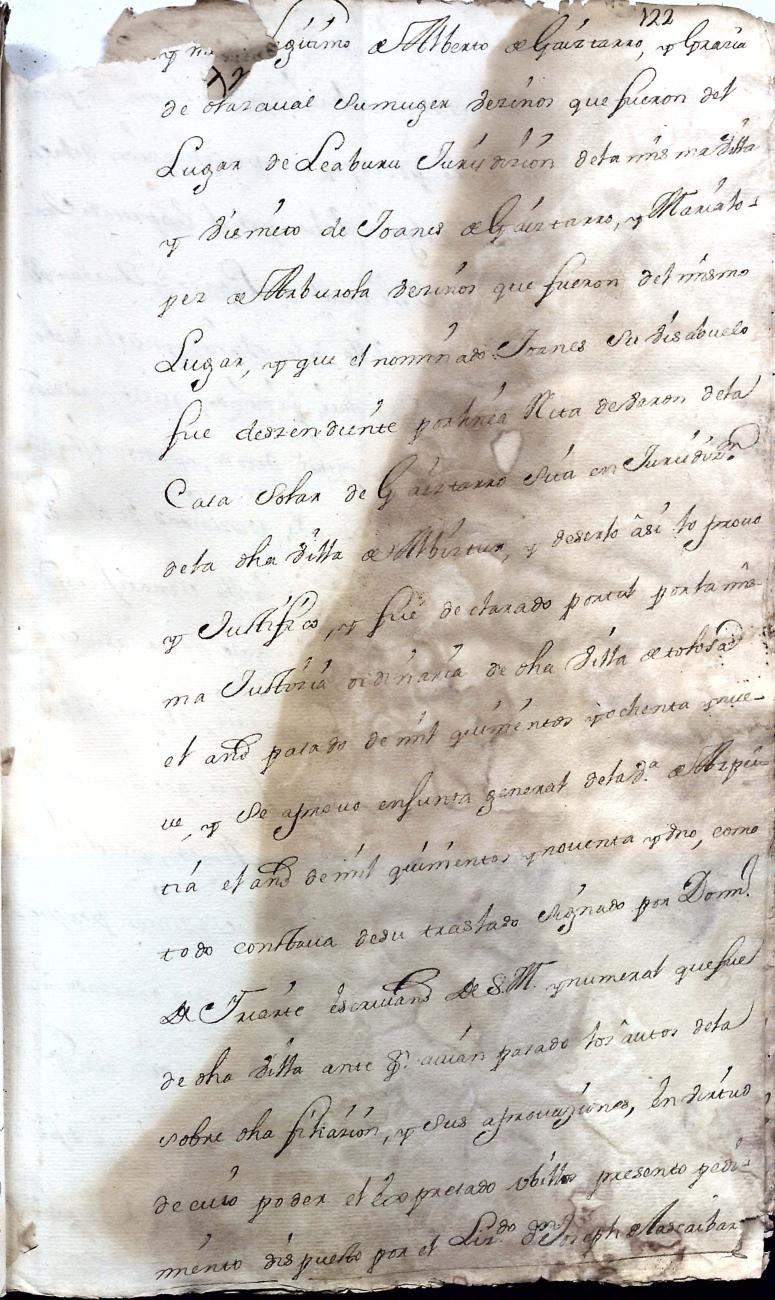 122
72
y            gitimo de Alberto de Gaiztarro, y Grazia
de olazaval su muger vezinos que fueron del
Lugar de Leaburu Jurisdizion de la misma villa
y visnieto de Joanes de Gaiztarro, y Maria lo-
pez de Aburola vezinos que fueron del mismo
Lugar, y que el nominado Joanes su visabuelo
fue deszendiente por linea Rita de varon dela
Casa solar de Gaiztarro sita en Jurisdizn.
dela dha villa de Albiztur, y deserlo âsi lo provo
y Justifico, y fue declarado por tal por la mis-
ma Justizia ordinaria de dha villa de tolosa
el año pasado de mil quinientos y ochenta y nue-
ve, y se aprovo en Junta general dela va. de Azpei-
tia el año de mil quinientos y noventa y dno, como
todo constava de su traslado signado por Domin.
De Yriarte escrivano De S. M. y numeral que fue
de dha villa ante qn. avian pasado los âutos dela
sobre dha filiazion, y sus aprovaziones, en virtud
de cuio poder el expresado vbillos presento pedi-
miento dispuesto por el Lizdo. dn Joseph de Ascaibar